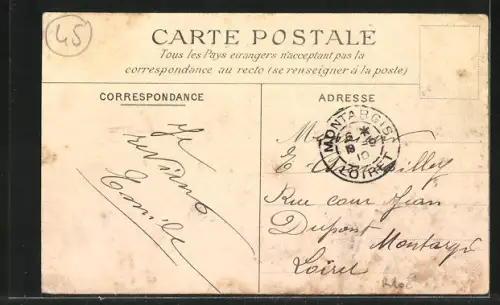 45
CARTE POSTALE
Tous les Pays étrangers n'acceptant pas la
correspondance au recto (se renseigner à la poste)
CORRESPONDANCE
ADRESSE
MONTARGIS
LOIRET
Je
reviens
Camille
E.
Rue cour Jean
Dupont Montargis
Loiret